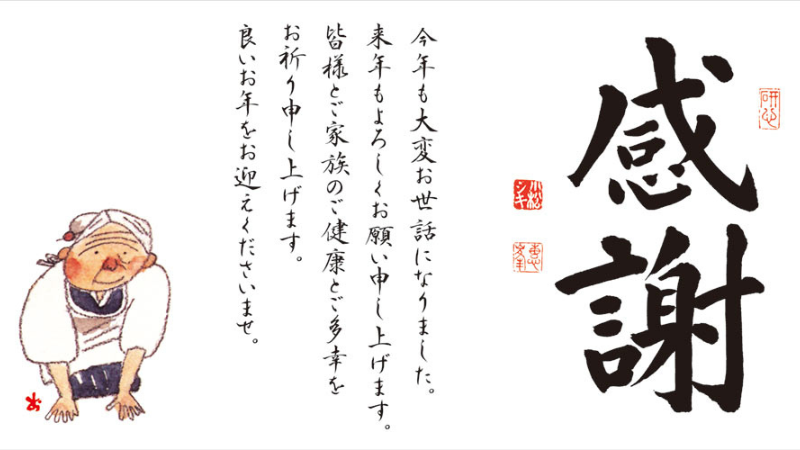 感謝
研心
小松
シキ
今年も大変お世話になりました。
来年もよろしくお願い申し上げます。
皆様とご家族のご健康とご多幸を
お祈り申し上げます。
良いお年をお迎えくださいませ。